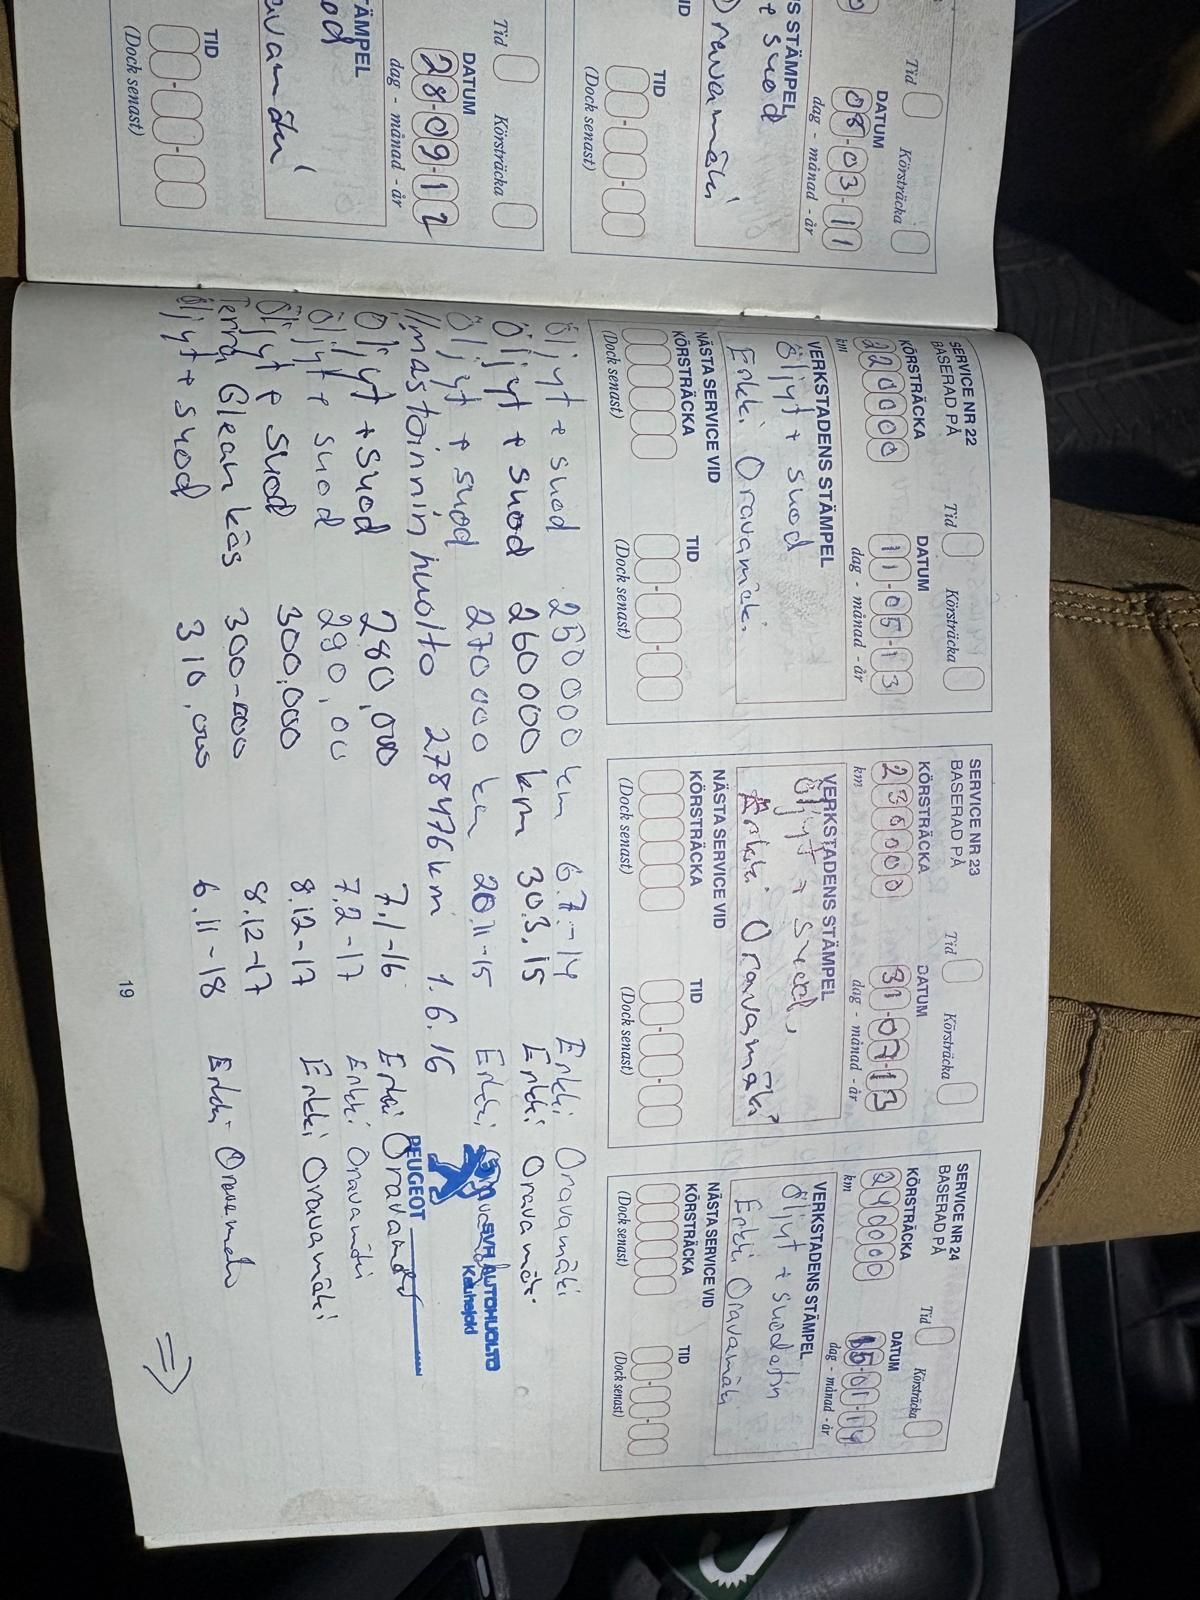 Tid
Körsträcka
DATUM
08-03-11
dag - månad - år
S STÄMPEL
+ suod
Oravamäki
TID
(Dock senast)
Tid
Körsträcka
DATUM
28-09-12
dag - månad - år
TÄMPEL
TID
(Dock senast)
SERVICE NR 22
BASERAD PÅ
Tid
Körsträcka
KÖRSTRÄCKA
220000
km
DATUM
11-05-13
dag - månad - år
VERKSTADENS STÄMPEL
Öljyt + suod
Erkki Oravamäki
NÄSTA SERVICE VID
KÖRSTRÄCKA
(Dock senast)
TID
(Dock senast)
SERVICE NR 23
BASERAD PÅ
Tid
Körsträcka
KÖRSTRÄCKA
230000
km
DATUM
31-07-13
dag - månad - år
VERKSTADENS STÄMPEL
Öljyt + suod.
Erkki Oravamäki
NÄSTA SERVICE VID
KÖRSTRÄCKA
(Dock senast)
TID
(Dock senast)
SERVICE NR 24
BASERAD PÅ
Tid
Körsträcka
KÖRSTRÄCKA
240000
km
DATUM
15-01-14
dag - månad - år
VERKSTADENS STÄMPEL
Öljyt + suodatin
Erkki Oravamäki
NÄSTA SERVICE VID
KÖRSTRÄCKA
(Dock senast)
TID
(Dock senast)
Öljyt + suod 250000 km 6.7.-14 Erkki Oravamäki
Öljyt + suod 260000 km 30.3.15 Erkki Oravamäki
Öljyt + suod 270000 km 20.11-15 Erkki
SVH AUTOHUOLTO
Kauhajoki
Ilmastoinnin huolto 278476 km 1.6.16
PEUGEOT
Öljyt + suod 280,000 7.1-16 Erkki Oravamäki
Öljyt + suod 290,00 7.2-17 Erkki Oravamäki
Öljyt + suod 300,000 8.12-17 Erkki Oravamäki
Terra Clean käs 300-000 8.12-17
Öljyt + suod 310,000 6.11-18 Erkki Oravamäki
19